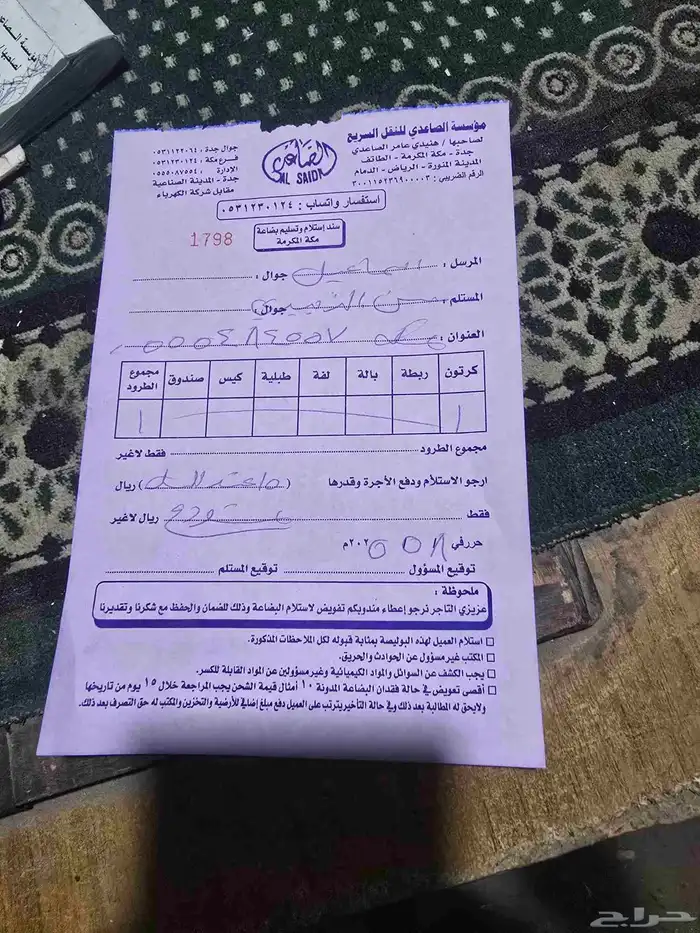 مؤسسة الصاعدي للنقل السريع
لصاحبها / هنيدي عامر الصاعدي
جدة - مكة المكرمة - الطائف
المدينة المنورة - الرياض - الدمام
الرقم الضريبي : ٣٠٠١١٥٢٣٦٩٠٠٠٠٣
الصاعدي
AL SAIDI
جوال جدة : ٠٥٣١١٢٢٠٦٤
فرع مكة : ٠٥٣١٢٣٠١٢٤
الإدارة : ٠٥٥٥٠٨٧٥٥٤
جدة - المدينة الصناعية
مقابل شركة الكهرباء
استفسار واتساب : ٠٥٣١٢٣٠١٢٤
سند إستلام وتسليم بضاعة
مكة المكرمة
1798
المرسل : جوال :
المستلم : جوال :
العنوان : ٠٥٥٥٤٨٤٥٥٧
كرتون ربطة بالة لفة طبلية كيس صندوق مجموع الطرود
١ ١
مجموع الطرود فقط لاغير
ارجو الاستلام ودفع الأجرة وقدرها ( ) ريال
فقط ريال لاغير
حرر في ٢٠٢م
توقيع المسؤول توقيع المستلم
ملحوظة :
عزيزي التاجر نرجو إعطاء مندوبكم تفويض لاستلام البضاعة وذلك للضمان والحفظ مع شكرنا وتقديرنا
□ استلام العميل لهذه البوليصة بمثابة قبوله لكل الملاحظات المذكورة.
□ المكتب غير مسؤول عن الحوادث والحريق.
□ يجب الكشف عن السوائل والمواد الكيميائية وغير مسؤولين عن المواد القابلة للكسر.
□ أقصى تعويض في حالة فقدان البضاعة المدونة ١٠ أمثال قيمة الشحن يجب المراجعة خلال ١٥ يوم من تاريخها
ولايحق له المطالبة بعد ذلك وفي حالة التأخير يترتب على العميل دفع مبلغ إضافي للأرضية والتخزين والمكتب له حق التصرف بعد ذلك.
حراج